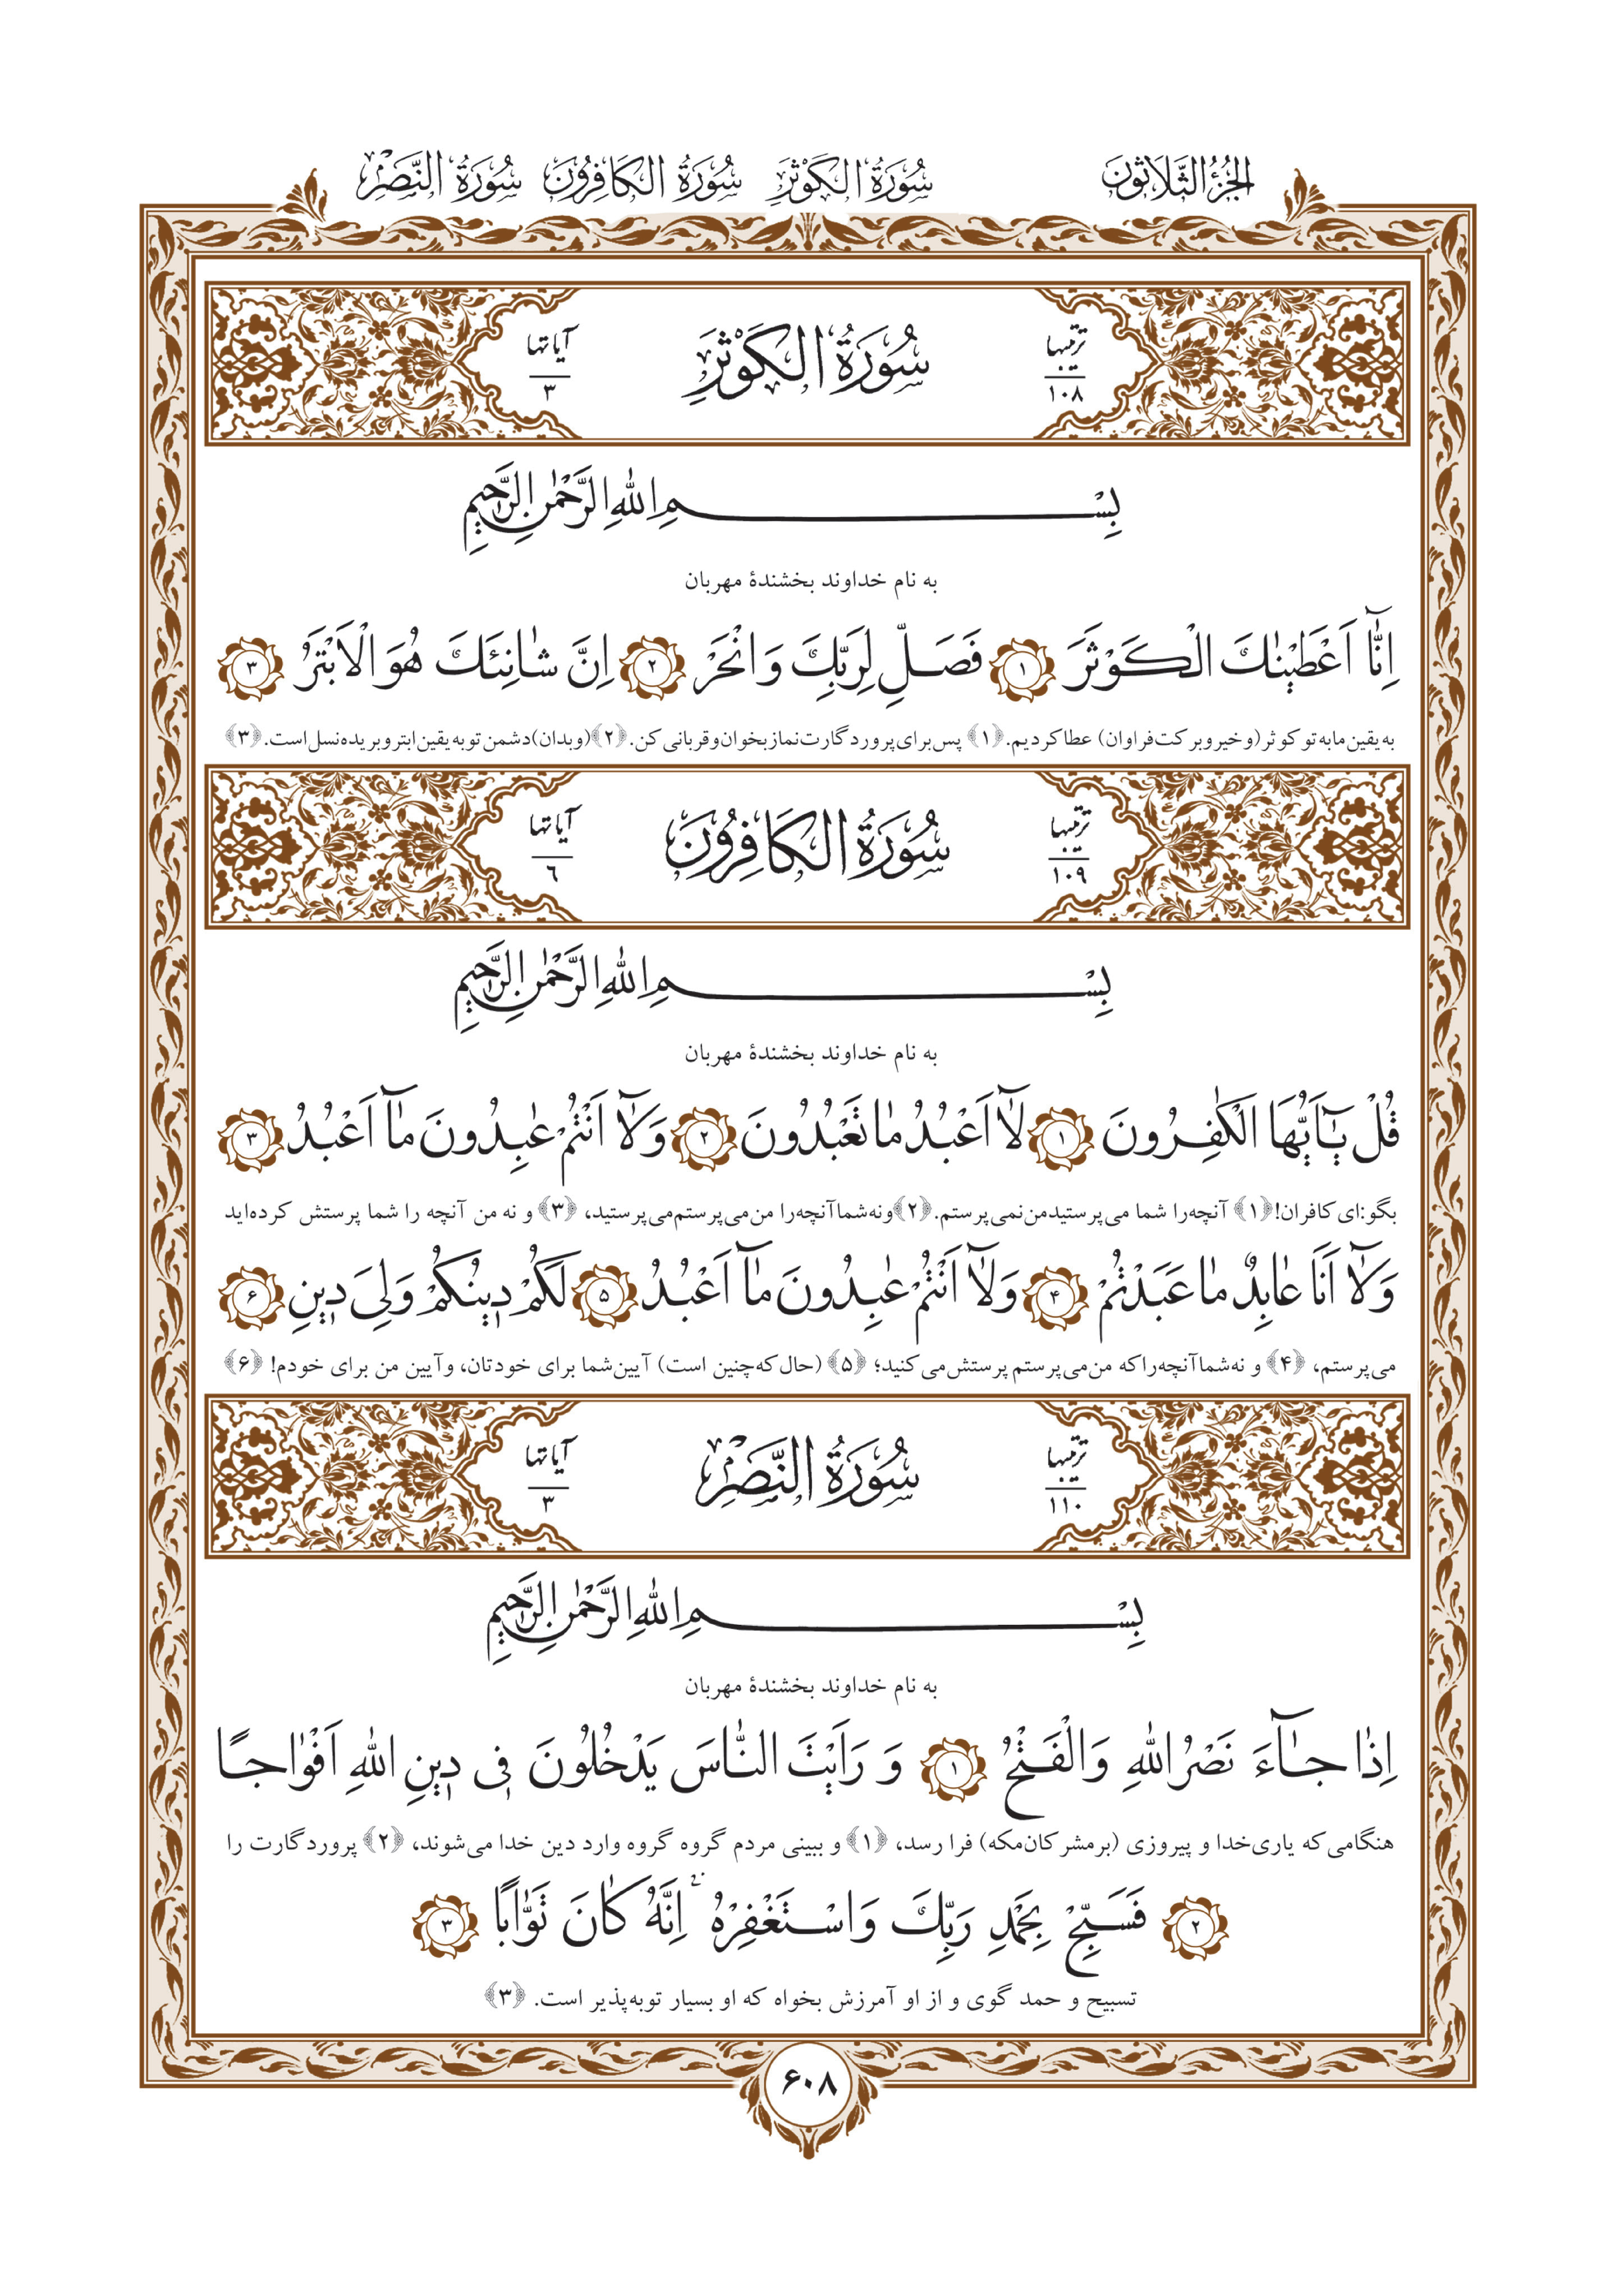 الجزء الثلاثون سُورَةُ الكَوْثَرِ سُورَةُ الكَافِرُونَ سُورَةُ النَّصْرِ
ترتيبها ١٠٨ سُورَةُ الكَوْثَرِ آياتها ٣
بِسْمِ اللهِ الرَّحْمٰنِ الرَّحِيمِ
به نام خداوند بخشندهٔ مهربان
اِنّٰٓا اَعْطَيْنٰاكَ الْكَوْثَرَ ﴿۱﴾ فَصَلِّ لِرَبِّكَ وَانْحَرْ ﴿۲﴾ اِنَّ شٰانِئَكَ هُوَ الْاَبْتَرُ ﴿۳﴾
به یقین ما به تو کوثر (و خیر و برکت فراوان) عطا کردیم. ﴿۱﴾ پس برای پروردگارت نماز بخوان و قربانی کن. ﴿۲﴾ (و بدان) دشمن تو به یقین ابتر و بریده نسل است. ﴿۳﴾
ترتيبها ١٠٩ سُورَةُ الكَافِرُونَ آياتها ٦
بِسْمِ اللهِ الرَّحْمٰنِ الرَّحِيمِ
به نام خداوند بخشندهٔ مهربان
قُلْ يٰٓا اَيُّهَا الْكٰافِرُونَ ﴿۱﴾ لٰٓا اَعْبُدُ مٰا تَعْبُدُونَ ﴿۲﴾ وَلٰٓا اَنْتُمْ عٰابِدُونَ مٰٓا اَعْبُدُ ﴿۳﴾
بگو: ای کافران! ﴿۱﴾ آنچه را شما می‌پرستید من نمی‌پرستم. ﴿۲﴾ و نه شما آنچه را من می‌پرستم می‌پرستید، ﴿۳﴾ و نه من آنچه را شما پرستش کرده‌اید
وَلٰٓا اَنَا عٰابِدٌ مٰا عَبَدْتُمْ ﴿۴﴾ وَلٰٓا اَنْتُمْ عٰابِدُونَ مٰٓا اَعْبُدُ ﴿۵﴾ لَكُمْ دِينُكُمْ وَلِيَ دِينِ ﴿۶﴾
می‌پرستم، ﴿۴﴾ و نه شما آنچه را که من می‌پرستم پرستش می‌کنید؛ ﴿۵﴾ (حال که چنین است) آیین شما برای خودتان، و آیین من برای خودم! ﴿۶﴾
ترتيبها ١١٠ سُورَةُ النَّصْرِ آياتها ٣
بِسْمِ اللهِ الرَّحْمٰنِ الرَّحِيمِ
به نام خداوند بخشندهٔ مهربان
اِذٰا جٰٓاءَ نَصْرُ اللهِ وَالْفَتْحُ ﴿۱﴾ وَ رَاَيْتَ النّٰاسَ يَدْخُلُونَ فِى دِينِ اللهِ اَفْوٰاجًا
هنگامی که یاری خدا و پیروزی (بر مشرکان مکه) فرا رسد، ﴿۱﴾ و ببینی مردم گروه گروه وارد دین خدا می‌شوند، ﴿۲﴾ پروردگارت را
﴿۲﴾ فَسَبِّحْ بِحَمْدِ رَبِّكَ وَاسْتَغْفِرْهُ اِنَّهُ كٰانَ تَوّٰابًا ﴿۳﴾
تسبیح و حمد گوی و از او آمرزش بخواه که او بسیار توبه‌پذیر است. ﴿۳﴾
۶۰۸